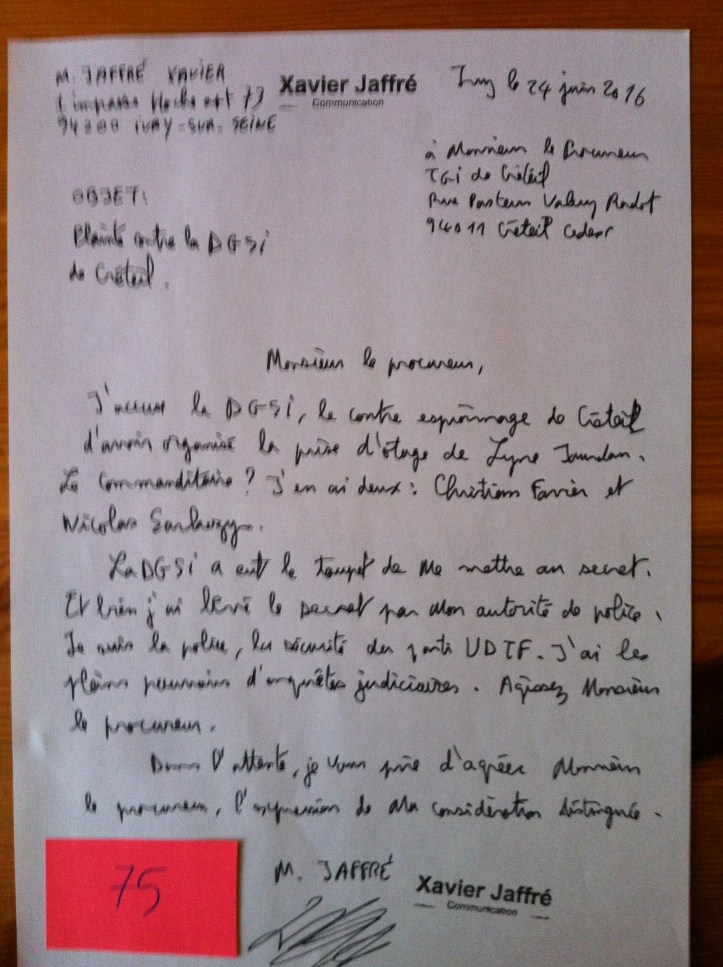 M. JAFFRÉ XAVIER
Xavier Jaffré
Communication
Ivry le 24 juin 2016
1 impasse Hoche apt 73
94200 IVRY-SUR-SEINE
à Monsieur le Procureur
TGI de Créteil
Rue Pasteur Valery Radot
94011 Créteil Cedex
OBJET:
Plainte contre la DGSI
de Créteil.
Monsieur le procureur,
J'accuse la DGSI, le contre espionnage de Créteil
d'avoir organisé la prise d'otage de Lyne
Le commanditaire ? J'en ai deux : Christian Favier et
Nicolas Sarkozy.
La DGSI a eut le toupet de me mettre au secret.
Et bien j'ai levé le secret par mon autorité de police.
Je suis la police, la sécurité du parti UDTF. J'ai les
pleins pouvoirs d'enquêtes judiciaires. Agissez Monsieur
le procureur.
Dans l'attente, je vous prie d'agréer Monsieur
le procureur, l'expression de ma considération distinguée.
75
M. JAFFRÉ
Xavier Jaffré
Communication